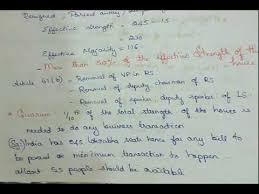 Resigned, Passed away,
Effective strength = 245 - 15
230
Effective Majority = 116
* More than 50% of the effective Strength of the house
Article 67(b) - Removal of VP in RS
- Removal of deputy chairman of RS
- Removal of speaker, deputy speaker of LS
* Quorum - 1/10th of the total strength of the houses is
needed to do any business transaction
Eg: India has 545 loksabha seats hence for any bill to
be passed or minimum transaction to happen
atleast 55 people should be available